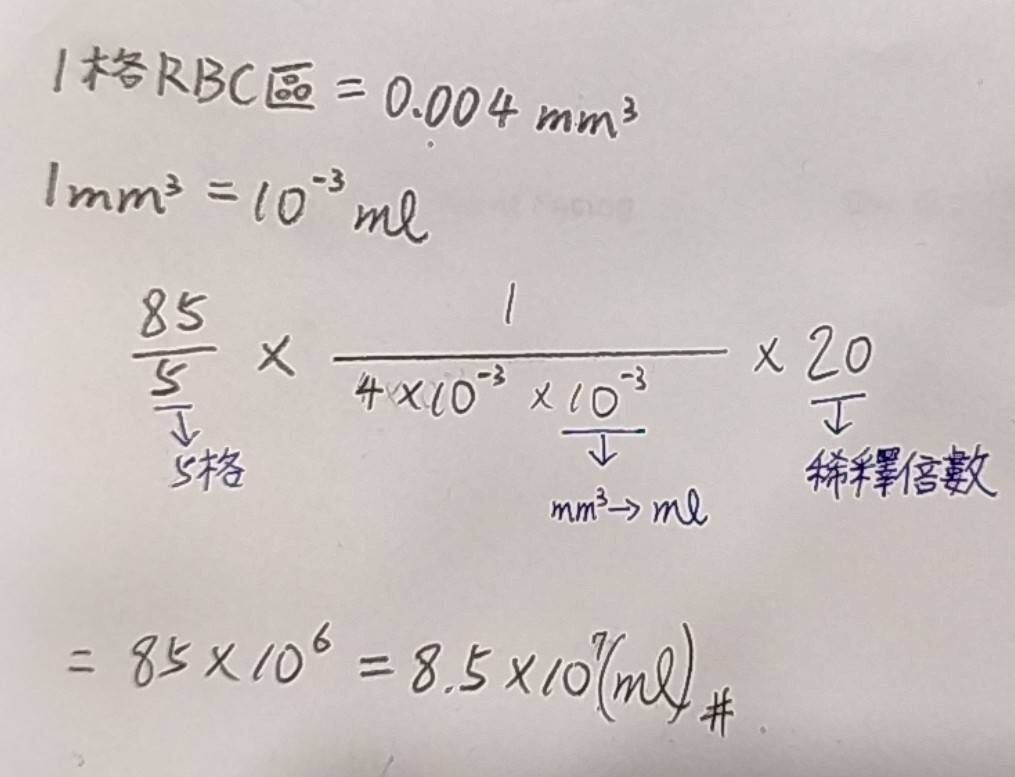 1格RBC區 = 0.004 mm³
1mm³ = 10⁻³ ml
85/5 × 1/(4×10⁻³ × 10⁻³) × 20
5格
mm³→ml
稀釋倍數
= 85×10⁶ = 8.5×10⁷(ml)#